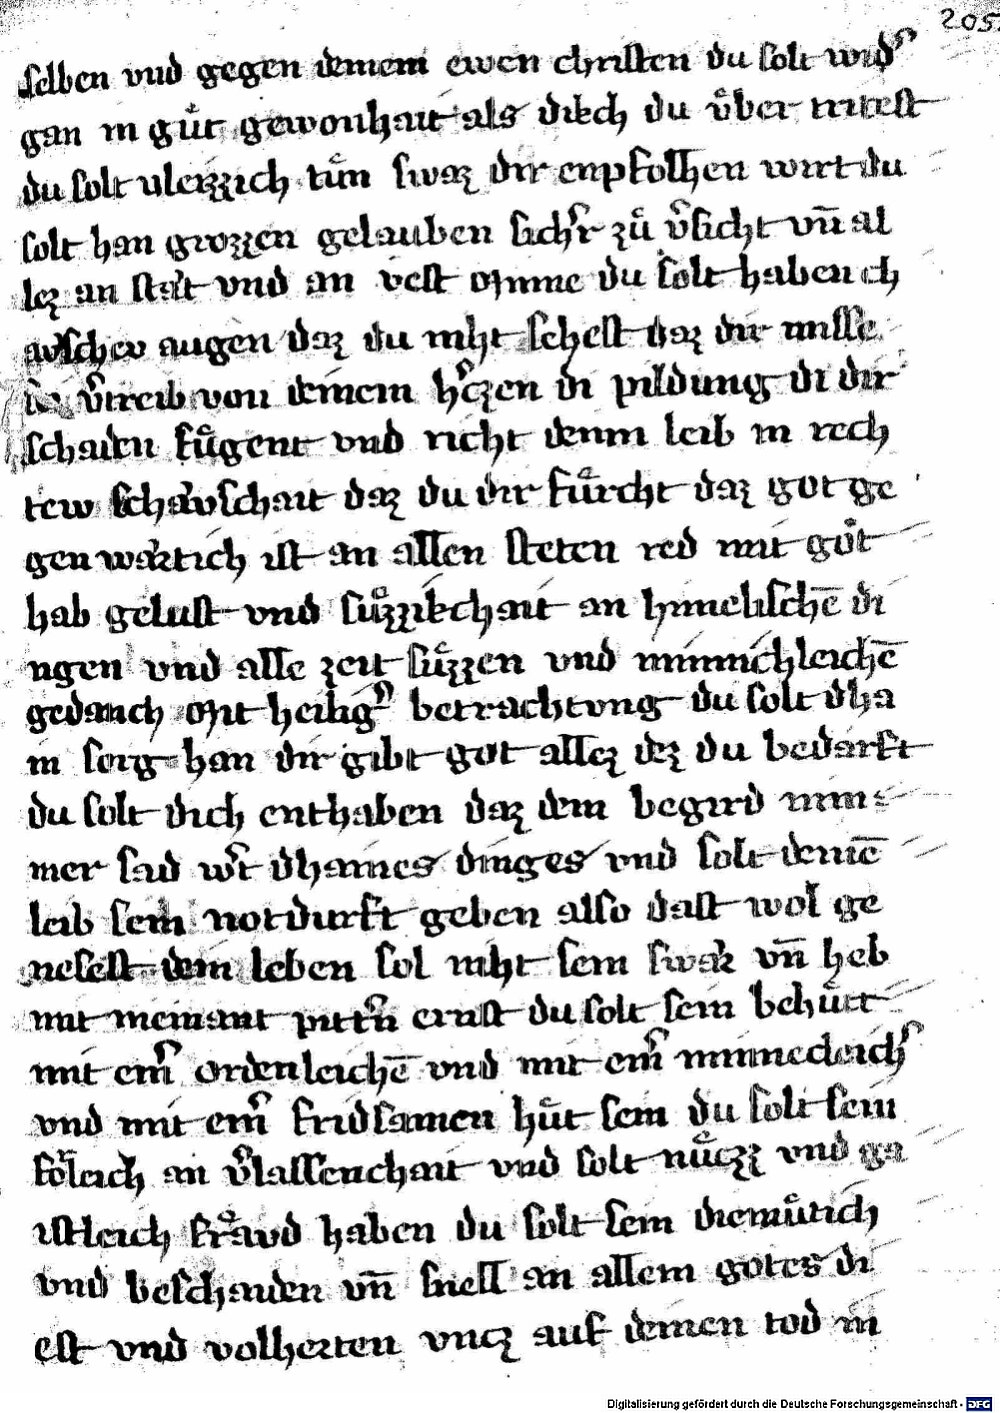 205.
selben vnd gegen deinem ewen christen du solt wid᷒
gan in guͤt gewonhait als dikch du uͤber tritest
du solt vleizzich tuͤn swaz dir enpfolhen wirt du
solt han grozzen gelauben sich᷒r zuͤ v᷒sicht vn̄ al
lez an stat vnd an vest du solt haben ch
augen daz du niht sehest daz dir misse
v᷒treib von deinem h᷒czen di pildung di dir
schaden fuͤgent vnd richt deinn leib in rech
tew schawschait daz du dir fuͤrcht daz got ge
genwaͤrtich ist an allen steten red mit guͦt
hab gelust vnd suͤzzikchait an himelischē di
ngen vnd alle zeit suͤzzen vnd minnichleichē
gedanch mit heilig᷒ betrachtung du solt dha
in sorg han dir gibt got allez dez du bedarft
du solt dich enthaben daz dein begird nim
mer sad w᷒t dhaines dinges vnd solt deinē
leib sein notdurft geben also dast wol ge
nesest dein leben sol niht sein swaͤr vn̄ heb
mit ernst du solt sein behuͤtt
mit ein᷒ ordenleichē vnd mit ein᷒ minnecleich᷒
vnd mit ein᷒ fridsamen huͤt sein du solt sein
froͤleich an v᷒lassenchait vnd solt nuͤczz vnd ga
istleich fraͤvd haben du solt sein diemuͤtich
vnd beschaiden vn̄ snell an allem gotes di
est vnd volherten vncz auf deinen tod in
Digitalisierung gefördert durch die Deutsche Forschungsgemeinschaft - DFG